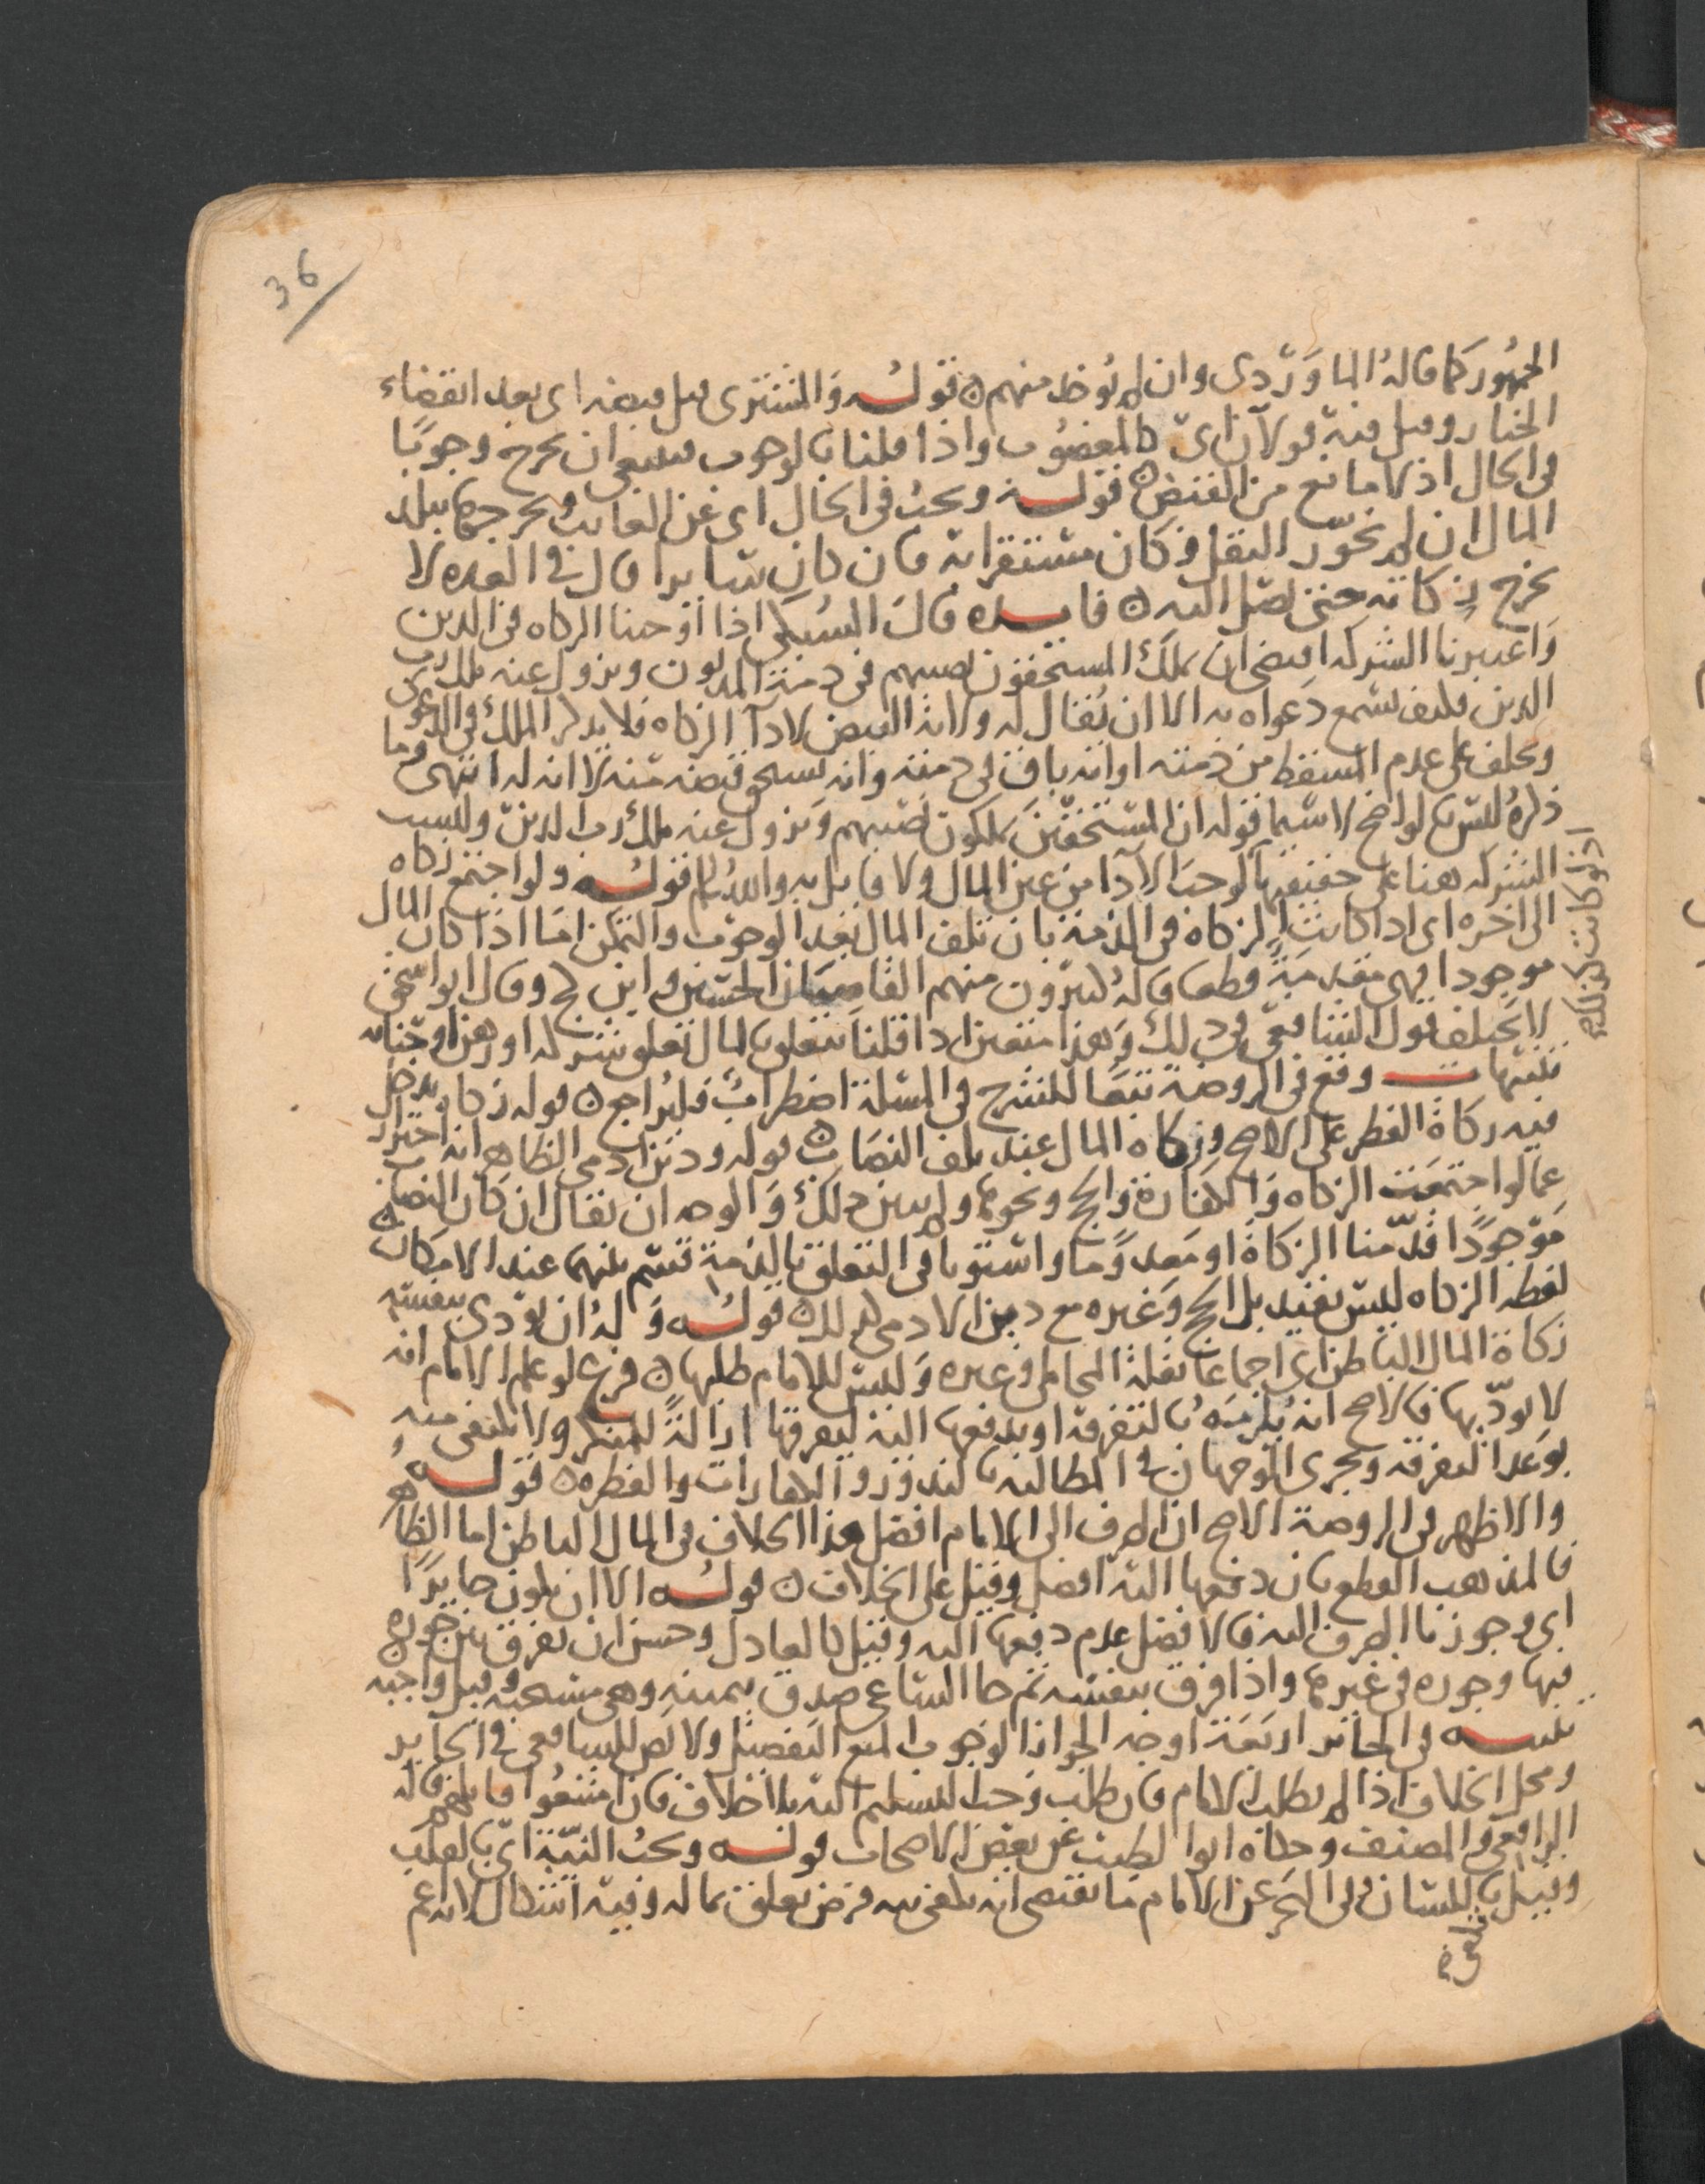 36
الجمهور كما قاله الماوردي وان لم توخذ منهم ن قوله والمشترى قبل قبضه اى بعد انقضاء
الخيار وقبل فيه قولان اى كالمغصوب واذا قلنا بالوجوب فينبغي ان يخرج وجوبا
في الحال اذ لا مانع من القبض ن قوله ويجب في الحال اى عن الغايب ويخرجها ببلد
المال ان لم نجوز النقل وكان مستقرا به فان كان سايرا قال في العده لا
يخرج زكاته حتى يصل اليه ن فايده قال السبكي اذا اوجبنا الزكاه في الدين
واعتبرنا الشركه اقتضى ان يملك المستحقون نصيبهم في ذمة المديون ويزول عنه ملك رب
الدين فكيف تسمع دعواه به الا ان يقال له ولاية القبض لادآ الزكاه فلا يذكر الملك في الدعوى
ويحلف على عدم المسقط من ذمته او انه باق في ذمته وانه يستحق قبضه منه لا انه له انتهى وما
ذكره ليس بالواضح لاسيما قوله ان المستحقين يملكون نصيبهم ويزول عنه ملك رب الدين وليست
الشركه هنا على حقيقتها لوجب الادا من عين المال ولا قايل به والله اعلم قوله ولو اجتمع زكاه
اذ لو كانت كذلك
الى اخره اى اذا كانت الزكاه في الذمة بان تلف المال بعد الوجوب والتمكن اما اذا كان المال
موجودا فهي مقدمة قطعا قاله كثيرون منهم القاضيان الحسين وابن كج وقال ابو اسحق
لا يختلف قول الشافعي في ذلك وهذا متعين اذا قلنا بتعلق المال تعلق شركه او رهن او جنايه
تنبيهات وقع في الروضة تبعا للشرح في المسلة اضطراب فليراجع ن قوله زكاه يدخل
فيه زكاة الفطر على الاصح وزكاه المال عند تلف النصاب ن قوله ودين ادمي الظاهر انه احتراز
عما لو اجتمعت الزكاه والكفارة والحج ونحوها ولم يبين ذلك والوجه ان يقال ان كان النصاب
موجودا قدمنا الزكاة او معدوما واستويا في التعلق بالذمة قسم بينهما عند الامكان ن
لفظه الزكاه ليس بقيد بل الحج وغيره مع دين الادمي كذلك ن قوله وله ان يودي بنفسه
زكاة المال الباطن اى اجماعا نقله المحاملي وغيره وليس للامام طلبها ن فرع لو علم الامام انه
لا يودّيها فالاصح انه يلزمه بالتفرقة او يدفعها اليه ليفرقها ازالة للمنكر ولا يكتفى منه
بوعد التفرقه ويجري الوجهان في المطالبه بالنذور والكفارات والفطره ن قوله
والاظهر في الروضة الاصح ان الصرف الى الامام افضل هذا الخلاف في المال الباطن اما الظاهر
فالمذهب القطع بان دفعها اليه افضل وقيل على الخلاف ن قوله الا ان يكون جايرا
اى وجوزنا الصرف اليه فالافضل عدم دفعها اليه وقيل كالعادل وحسن ان يفرق بين جوره
فيها وجوره في غيرها واذا فرق بنفسه ثم جا الساعي صدق بيمينه وهي مستحبه وقيل واجبه ن
تنبيه في الجاير اربعة اوجه الجواز الوجوب المنع التفصيل ولا نص للشافعي في الجاير
ومحل الخلاف اذا لم يطلب الامام فان طلب وجب التسليم اليه بلا خلاف فان امتنعوا قاتلهم قاله
الرافعي والمصنف وحكاه ابو الطيب عن بعض الاصحاب قوله وتجب النية اى بالقلب
وقيل باللسان وفي البحر عن الامام ما يقتضي انه يكفي نيه فرض تعلق بماله وفيه اشكال لانه عم